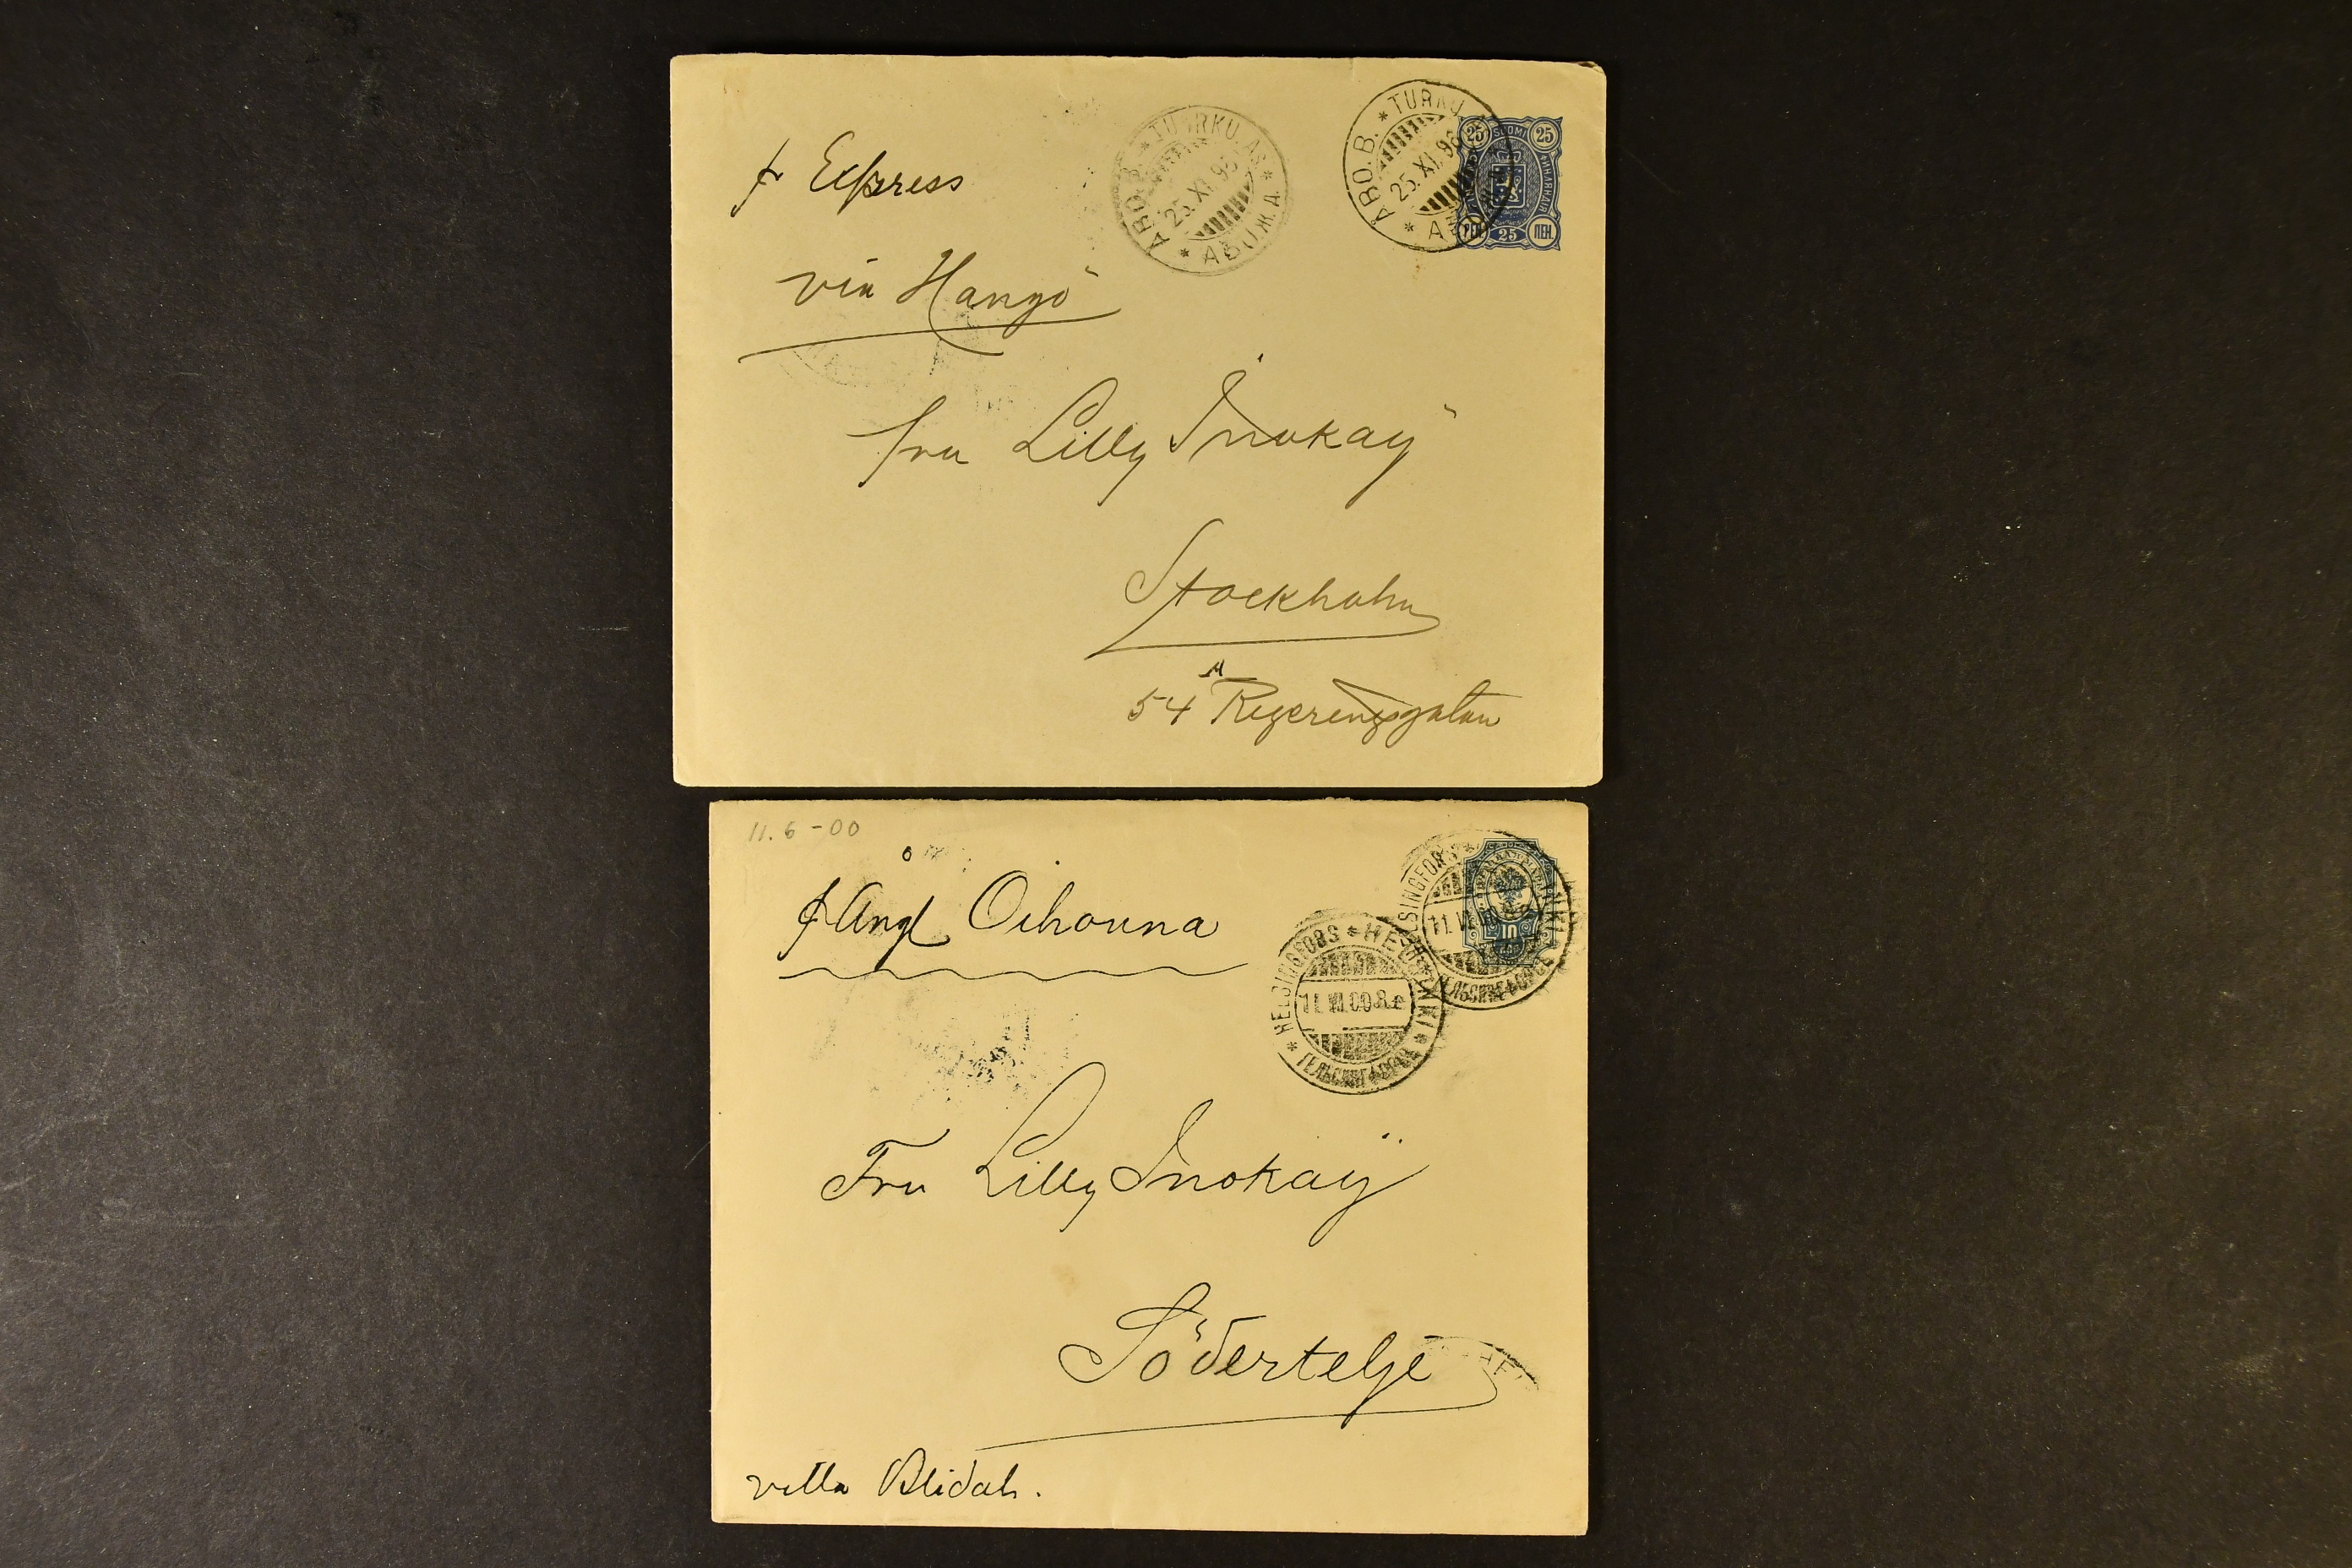 ÅBO.B. * TURKU.AS * АБО Ж.Д. *
25.XI.96
ÅBO.B. * TURKU
25.XI.96
25 SUOMI 25
PEN. 25 ПЕН.
pr Express
via Hangö
fru Lilly Inokaÿ
Stockholm
54 A Regeringsgatan
11.6-00
HELSINGFORS
11.VI.00
10
pr Ångf Oihonna
* HELSINGFORS * HELSINKI * ГЕЛЬСИНГФОРСЪ
11.VI.00 8.e
Fru Lilly Inokaÿ
Södertelje
villa Blidah.